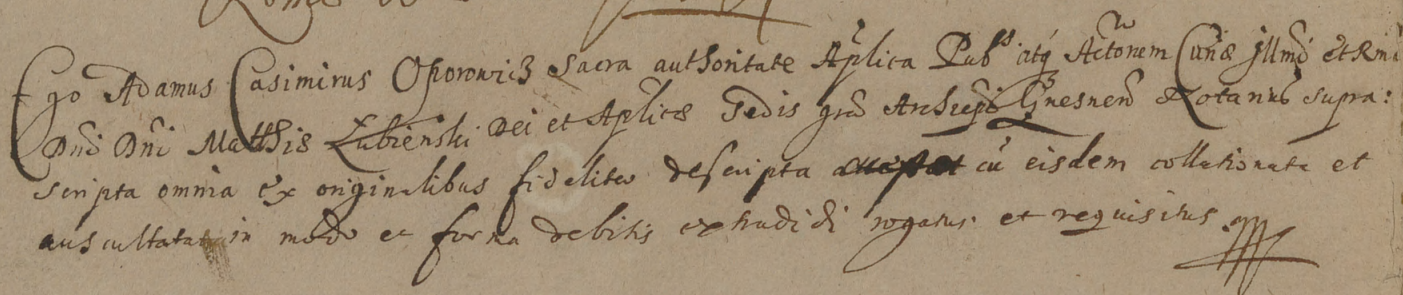 Ego Adamus Casimirus Oporowicz Sacra authoritate Aplica Pubs atq Actorum Curiæ Illmi et Rmi
Dni Dni Matthiæ Lubienski Dei et Aplicæ Sedis gra Archiepi Gnesnen Notarius supra:
scripta omnia ex originalibus fideliter descripta cu eisdem collationata et
auscultata in modo et forma debitis extradidi rogatus et requisitus.